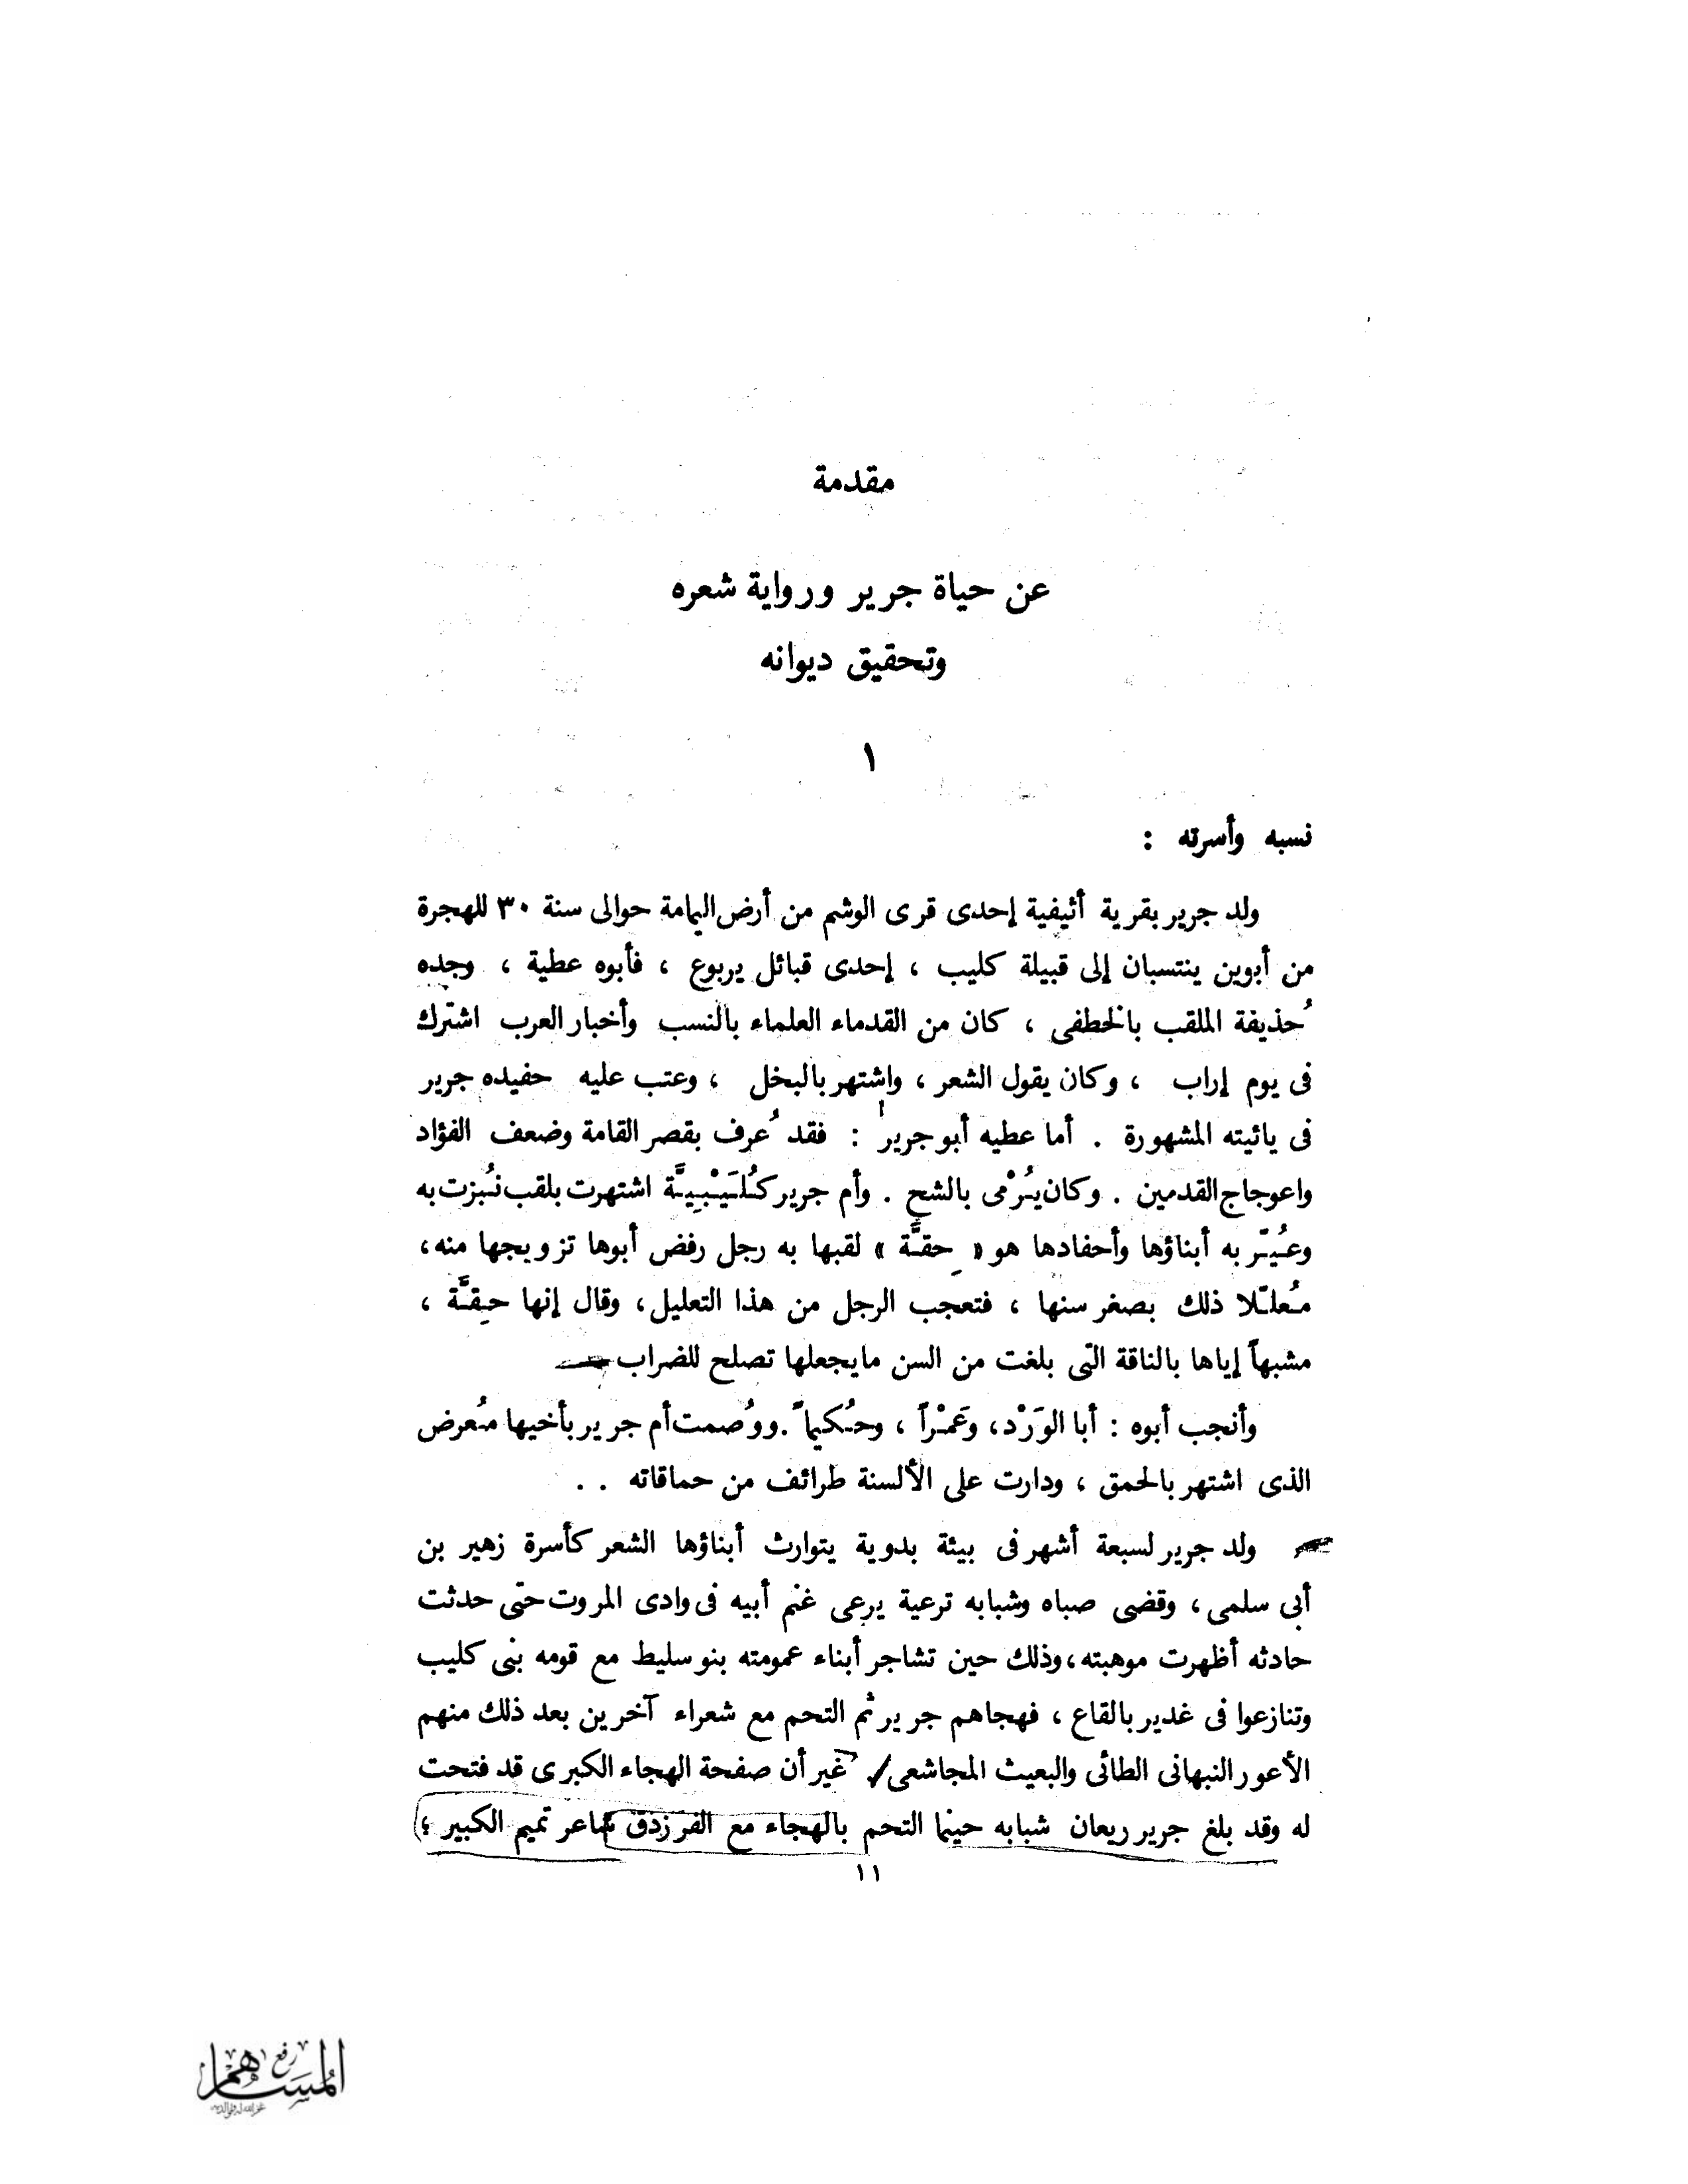 مقدمة
عن حياة جرير ورواية شعره
وتحقيق ديوانه
١
نسبه وأسرته :
ولد جرير بقرية أثيفية إحدى قرى الوشم من أرض اليمامة حوالى سنة ٣٠ للهجرة
من أبوين ينتسبان إلى قبيلة كليب ، إحدى قبائل يربوع ، فأبوه عطية ، وجده
حُذيفة الملقب بالخطفى ، كان من القدماء العلماء بالنسب وأخبار العرب اشترك
فى يوم إراب ، وكان يقول الشعر ، واشتهر بالبخل ، وعتب عليه حفيده جرير
فى يائيته المشهورة . أما عطيه أبو جرير : فقد عُرف بقصر القامة وضعف الفؤاد
واعوجاج القدمين . وكان يُرْمى بالشح . وأم جرير كُلَيْبِيَّة اشتهرت بلقب نُبزت به
وعُيّر به أبناؤها وأحفادها هو « حِقَّة » لقبها به رجل رفض أبوها تزويجها منه،
مُعلّلا ذلك بصغر سنها ، فتعجب الرجل من هذا التعليل، وقال إنها حِقَّة ،
مشبهاً إياها بالناقة التى بلغت من السن ما يجعلها تصلح للضراب
وأنجب أبوه : أبا الوَرْد، وعَمْراً ، وحُكيماً . ووُصمت أم جرير بأخيها مُعرض
الذى اشتهر بالحمق ، ودارت على الألسنة طرائف من حماقاته . .
ولد جرير لسبعة أشهر فى بيئة بدوية يتوارث أبناؤها الشعر كأسرة زهير بن
أبى سلمى، وقضى صباه وشبابه ترعية يرعى غنم أبيه فى وادى المروت حتى حدثت
حادثه أظهرت موهبته، وذلك حين تشاجر أبناء عمومته بنو سليط مع قومه بنى كليب
وتنازعوا فى غدير بالقاع ، فهجاهم جرير ثم التحم مع شعراء آخرين بعد ذلك منهم
الأعور النبهانى الطائى والبعيث المجاشعى . غير أن صفحة الهجاء الكبرى قد فتحت
له وقد بلغ جرير ريعان شبابه حينما التحم بالهجاء مع الفرزدق شاعر تميم الكبير ؛
١١
رفع
المساهم